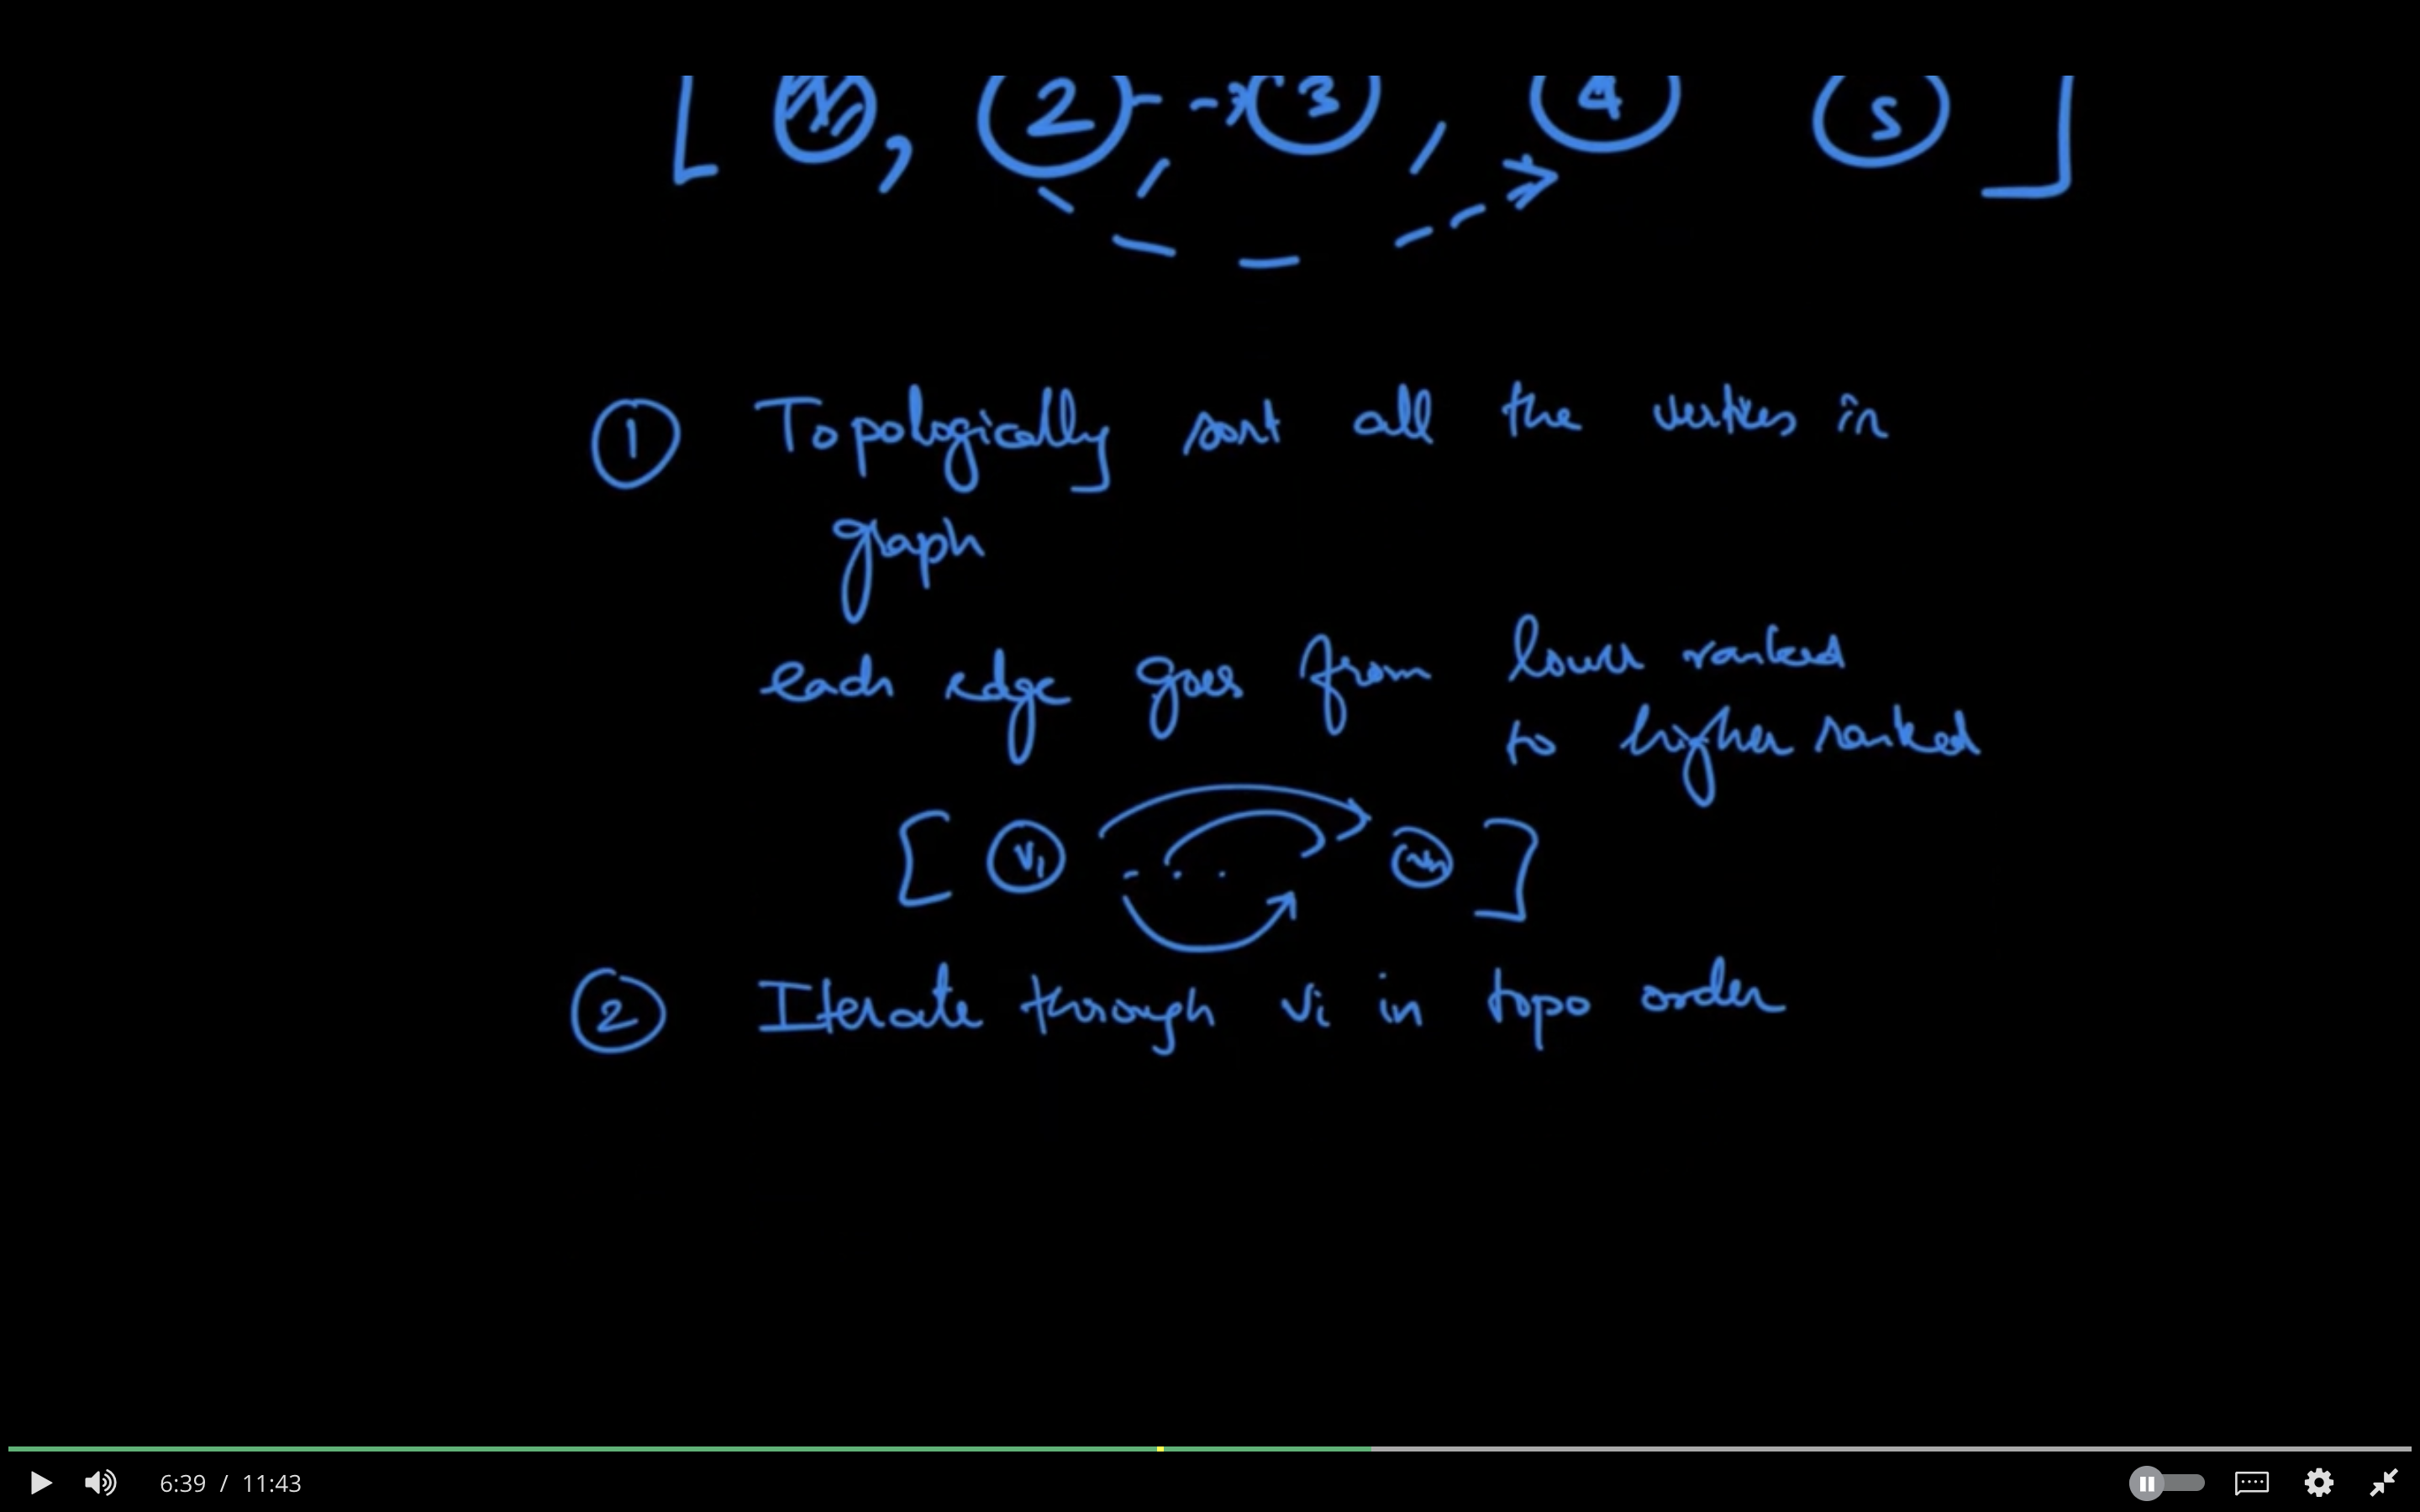 2 3 , 4 5
① Topologically sort all the vertices in
graph
each edge goes from lower ranked
to higher ranked
[ v1 . . . vn ]
② Iterate through vi in topo order
6:39 / 11:43